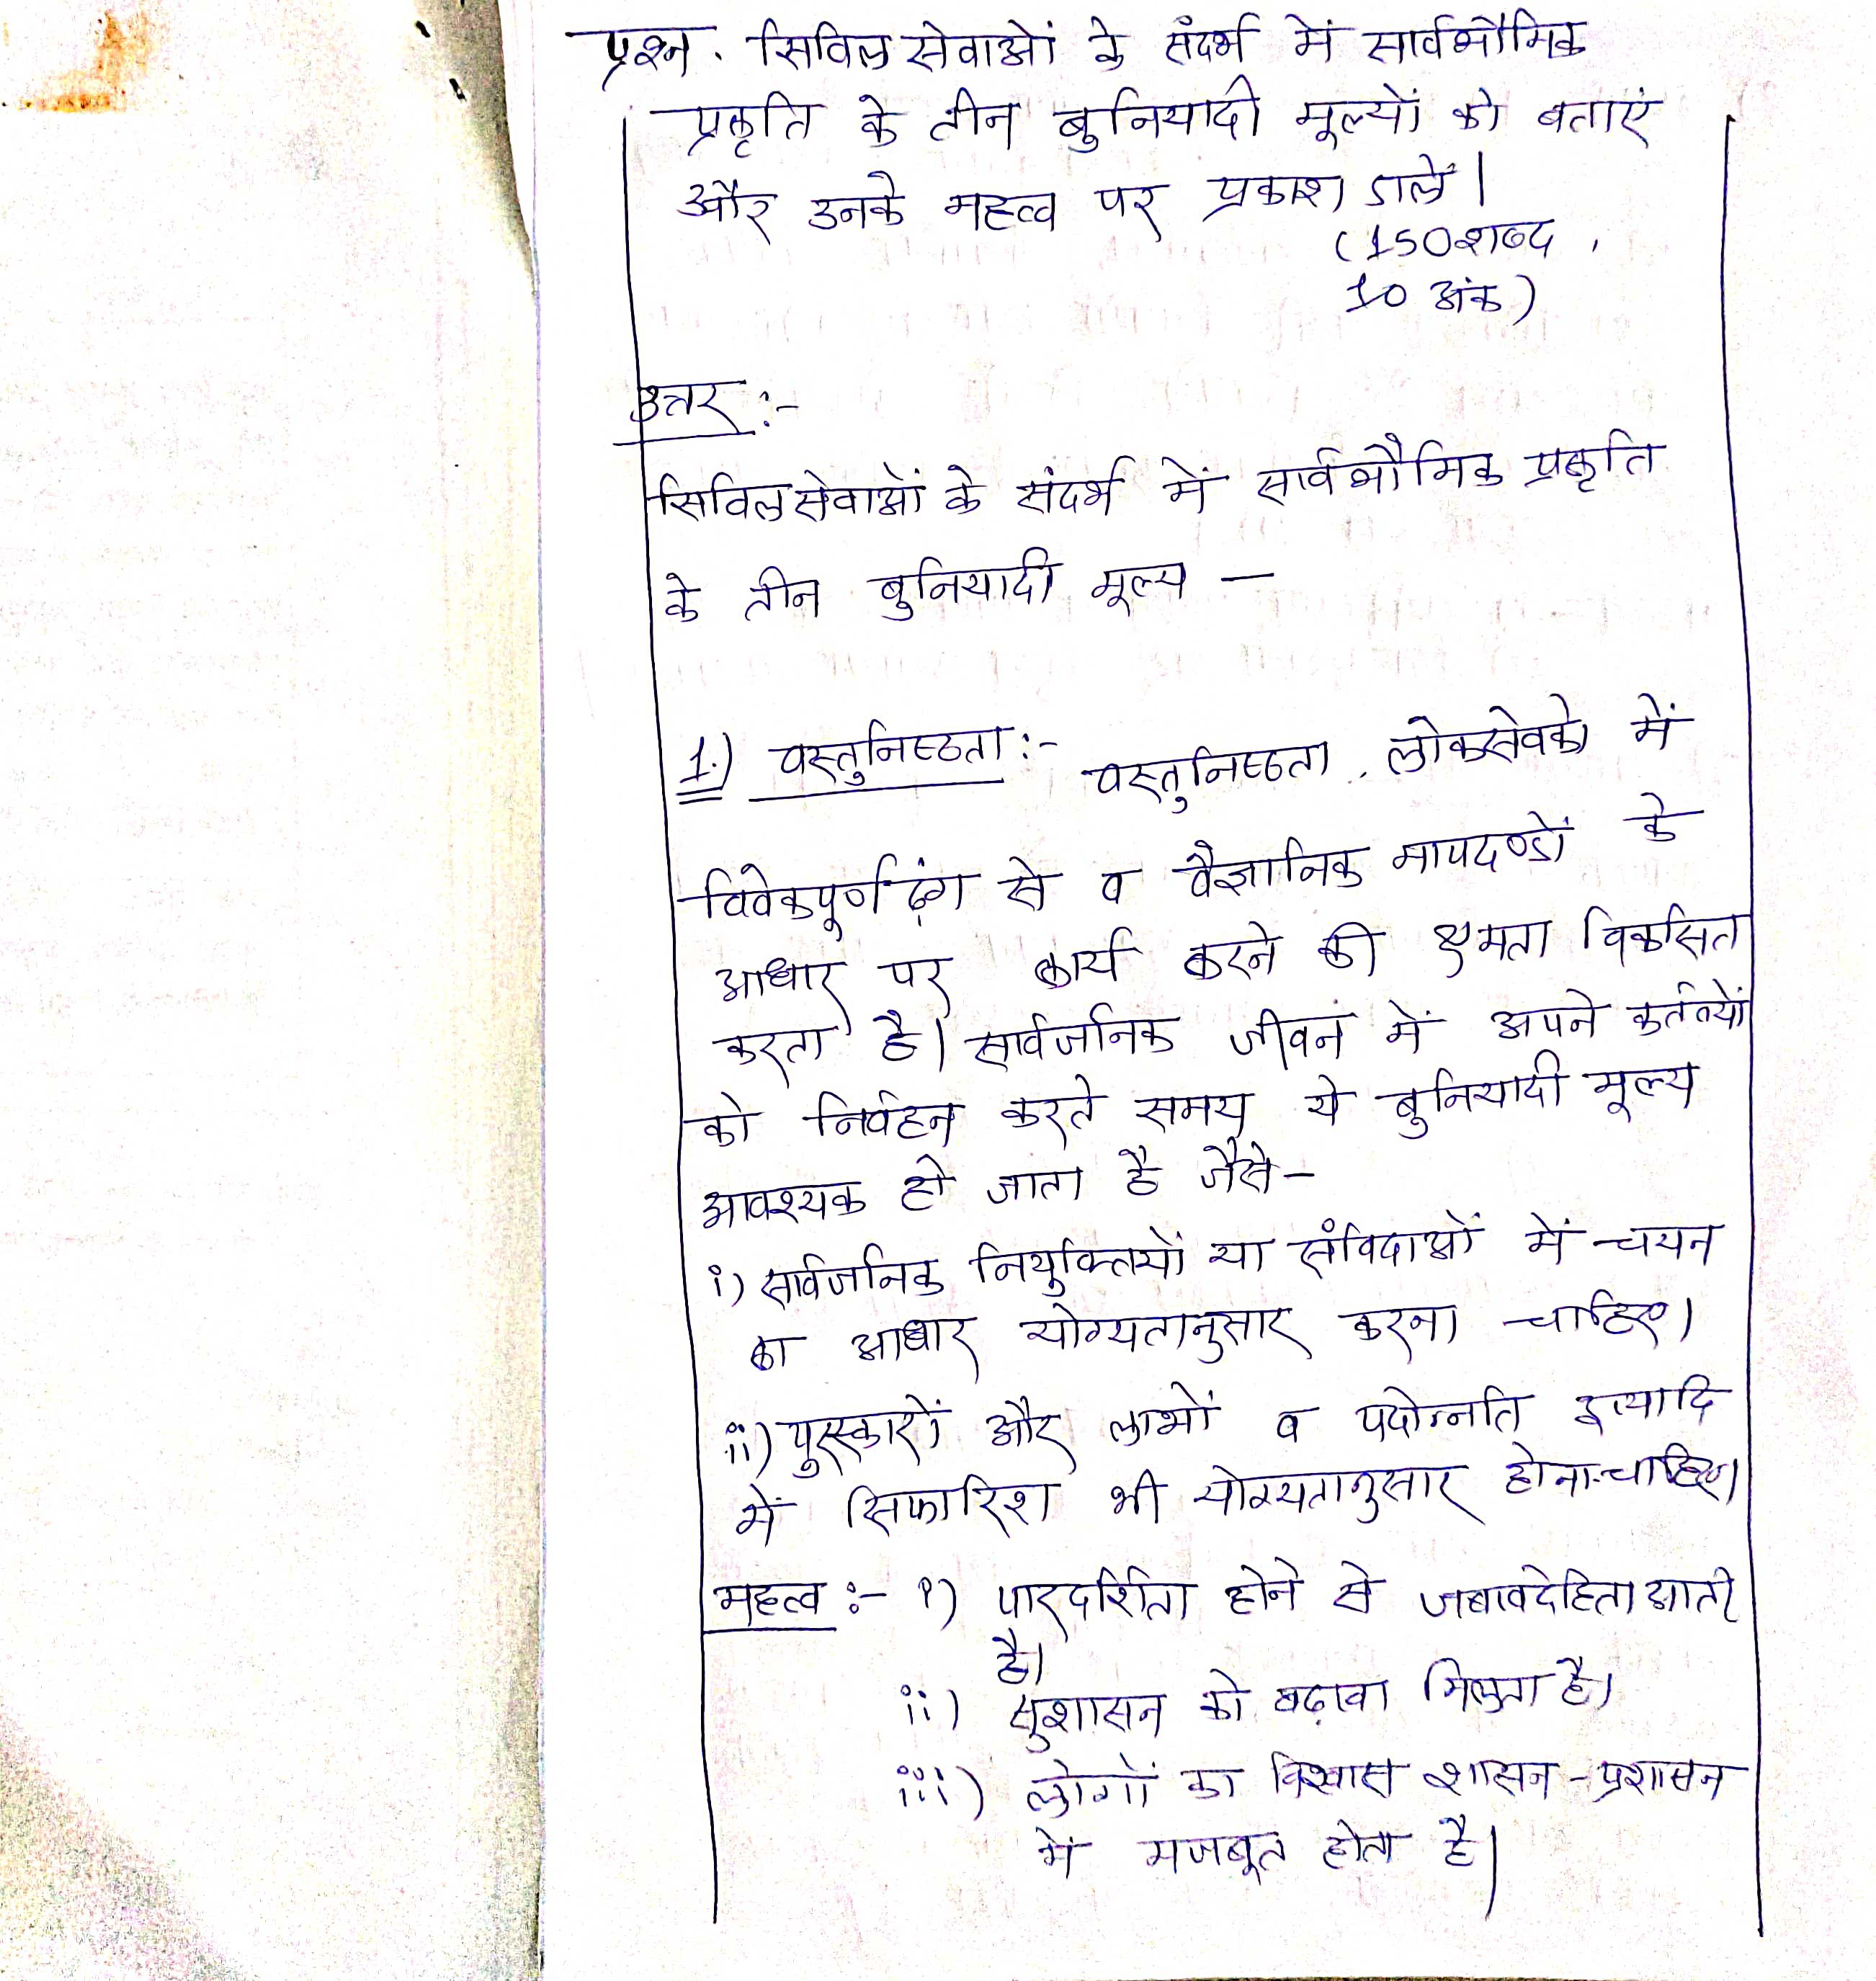 प्रश्न. सिविल सेवाओं के संदर्भ में सार्वभौमिक
प्रकृति के तीन बुनियादी मूल्यों को बताएं
और उनके महत्व पर प्रकाश डालें।
(150 शब्द,
10 अंक)
उत्तर :-
सिविल सेवाओं के संदर्भ में सार्वभौमिक प्रकृति
के तीन बुनियादी मूल्य –
1.) वस्तुनिष्ठता :- वस्तुनिष्ठता, लोकसेवको में
विवेकपूर्ण ढंग से व वैज्ञानिक मापदण्डों के
आधार पर कार्य करने की क्षमता विकसित
करता है। सार्वजनिक जीवन में अपने कर्तव्यों
को निर्वहन करते समय ये बुनियादी मूल्य
आवश्यक हो जाता है जैसे –
i) सार्वजनिक नियुक्तियों या संविदाओं में चयन
का आधार योग्यतानुसार करना चाहिए।
ii) पुरस्कारों और लाभों व पदोन्नति इत्यादि
में सिफारिश भी योग्यतानुसार होना चाहिए।
महत्व :- i) पारदर्शिता होने से जबावदेहिता आती
है।
ii) सुशासन को बढ़ावा मिलता है।
iii) लोगों का विश्वास शासन - प्रशासन
में मजबूत होता है।